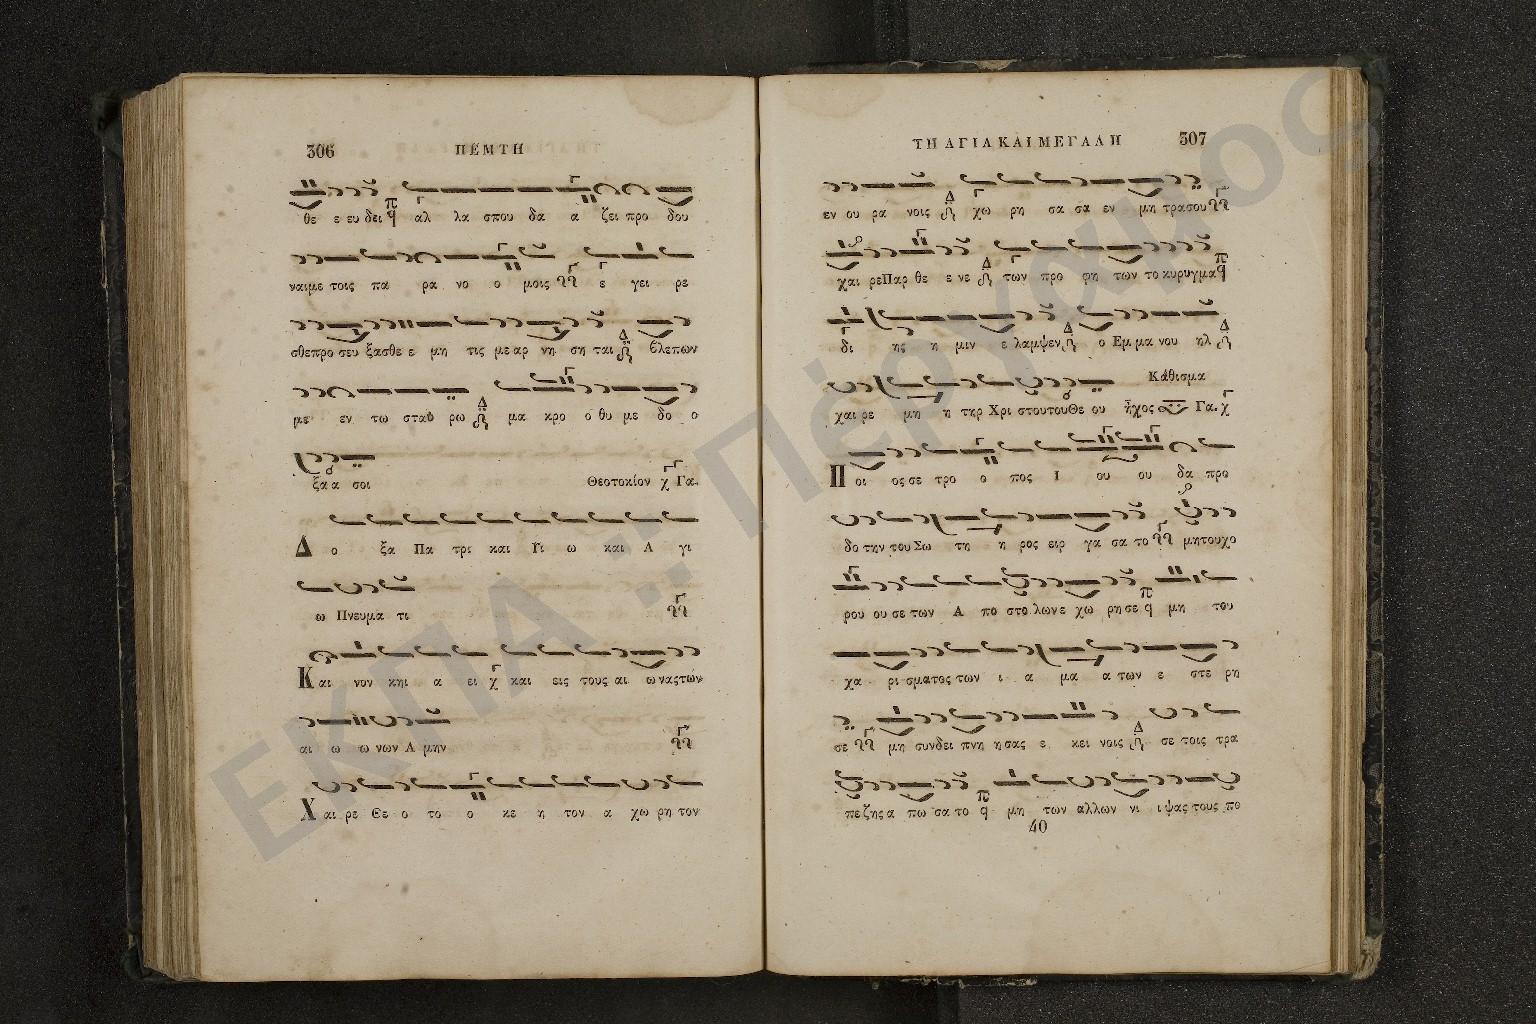 306 ΠΕΜΤΗ
θε ε ευ δει αλ λα σπου δα α ζει προ δου
ναι με τοις πα ρα νο ο μοις ε γει ρε
σθε προ σευ ξασθε ε μη τις με αρ νη ση ται βλεπων
με εν τω σταυ ρω μα κρο ο θυ με δο ο
ξα α σοι Θεοτοκίον χ Γα.
Δ ο ξα Πα τρι και Υι ω και Α γι
ω Πνευμα τι
Και νυν και α ει χ και εις τους αι ω νας των
αι ω ω νων Α μην
Χ αι ρε Θε ο το ο κε η τον α χω ρη τον
ΤΗ ΑΓΙΑ ΚΑΙ ΜΕΓΑΛΗ 307
εν ου ρα νοις χω ρη σα σα εν μη τρα σου
χαι ρε Παρ θε ε νε των προ φη των το κυρυγμα
δι ης η μιν ε λαμψεν ο Εμ μα νου ηλ
Κάθισμα
χαι ρε μη η τηρ Χρι στου του Θε ου ἦχος Γα. χ
Π οι ος σε τρο ο πος Ι ου ου δα προ
δο την του Σω τη η ρος ειρ γα σα το μη του χο
ρου ου σε των Α πο στο λων ε χω ρη σε μη του
χα ρι σματος των ι α μα α των ε στε ρη
σε μη συνδει πνη η σας ε κει νοις σε τοις τρα
πε ζης α πω σα το μη των αλλων νι ι ψας τους πο
40